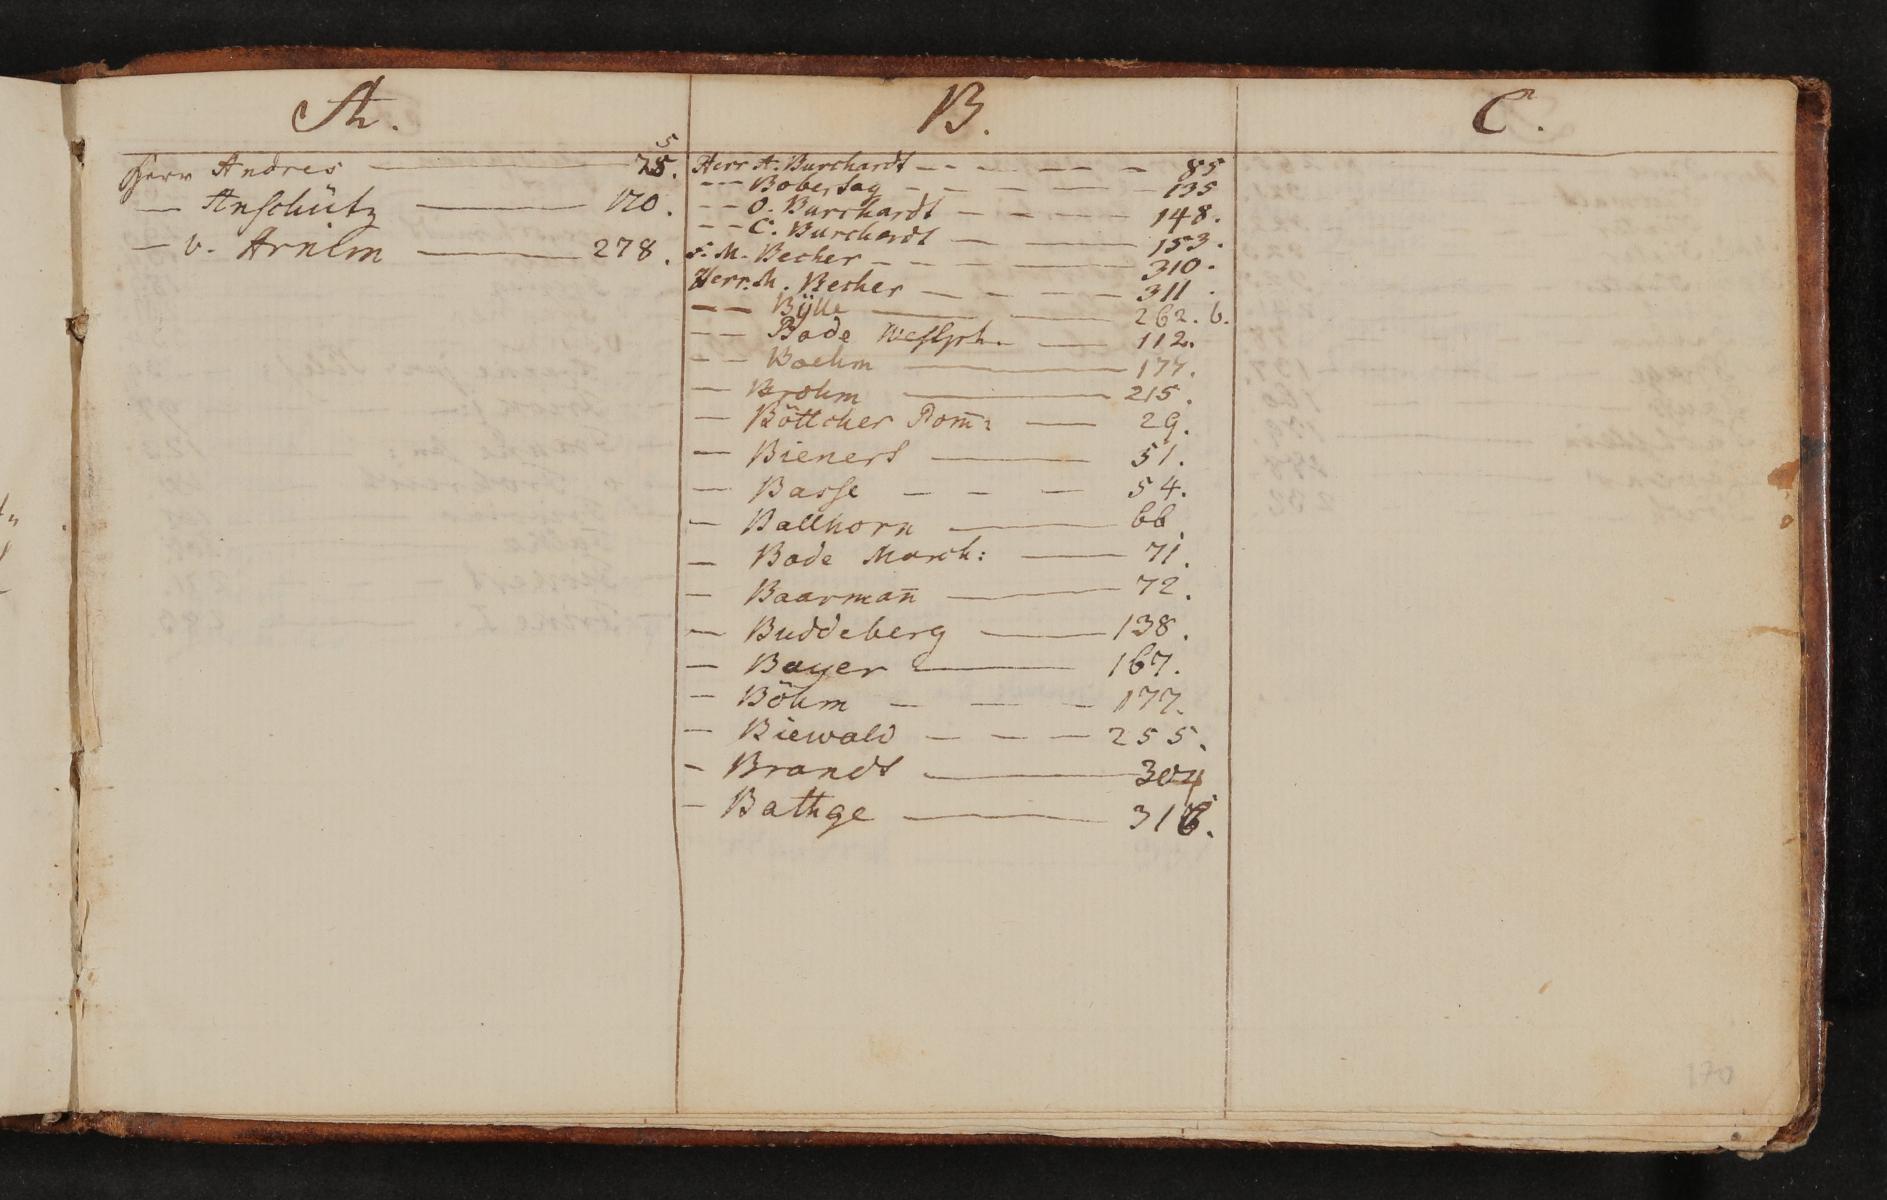 A.
Herr Andres 75.
— Anschütz 170.
— v. Arnim 278.
B.
Herr A. Burchardt 85
-- Bobertag 135
-- O. Burchardt 148.
-- C. Burchardt 153.
F. M. Becher 310.
Herr. M. Becher 311.
-- Bÿlle 262. b.
-- Bode Westph. 112.
-- Boehm 177.
— Brohm 215.
— Böttcher Pom̄: 29.
— Bienert 51.
— Basse 54.
— Ballhorn 66.
— Bode March: 71.
— Baarman̄ 72.
— Buddeberg 138.
— Bayer 167.
— Böhm 177.
— Biewald 255.
— Brandt 304
— Bathge 316.
C.
170